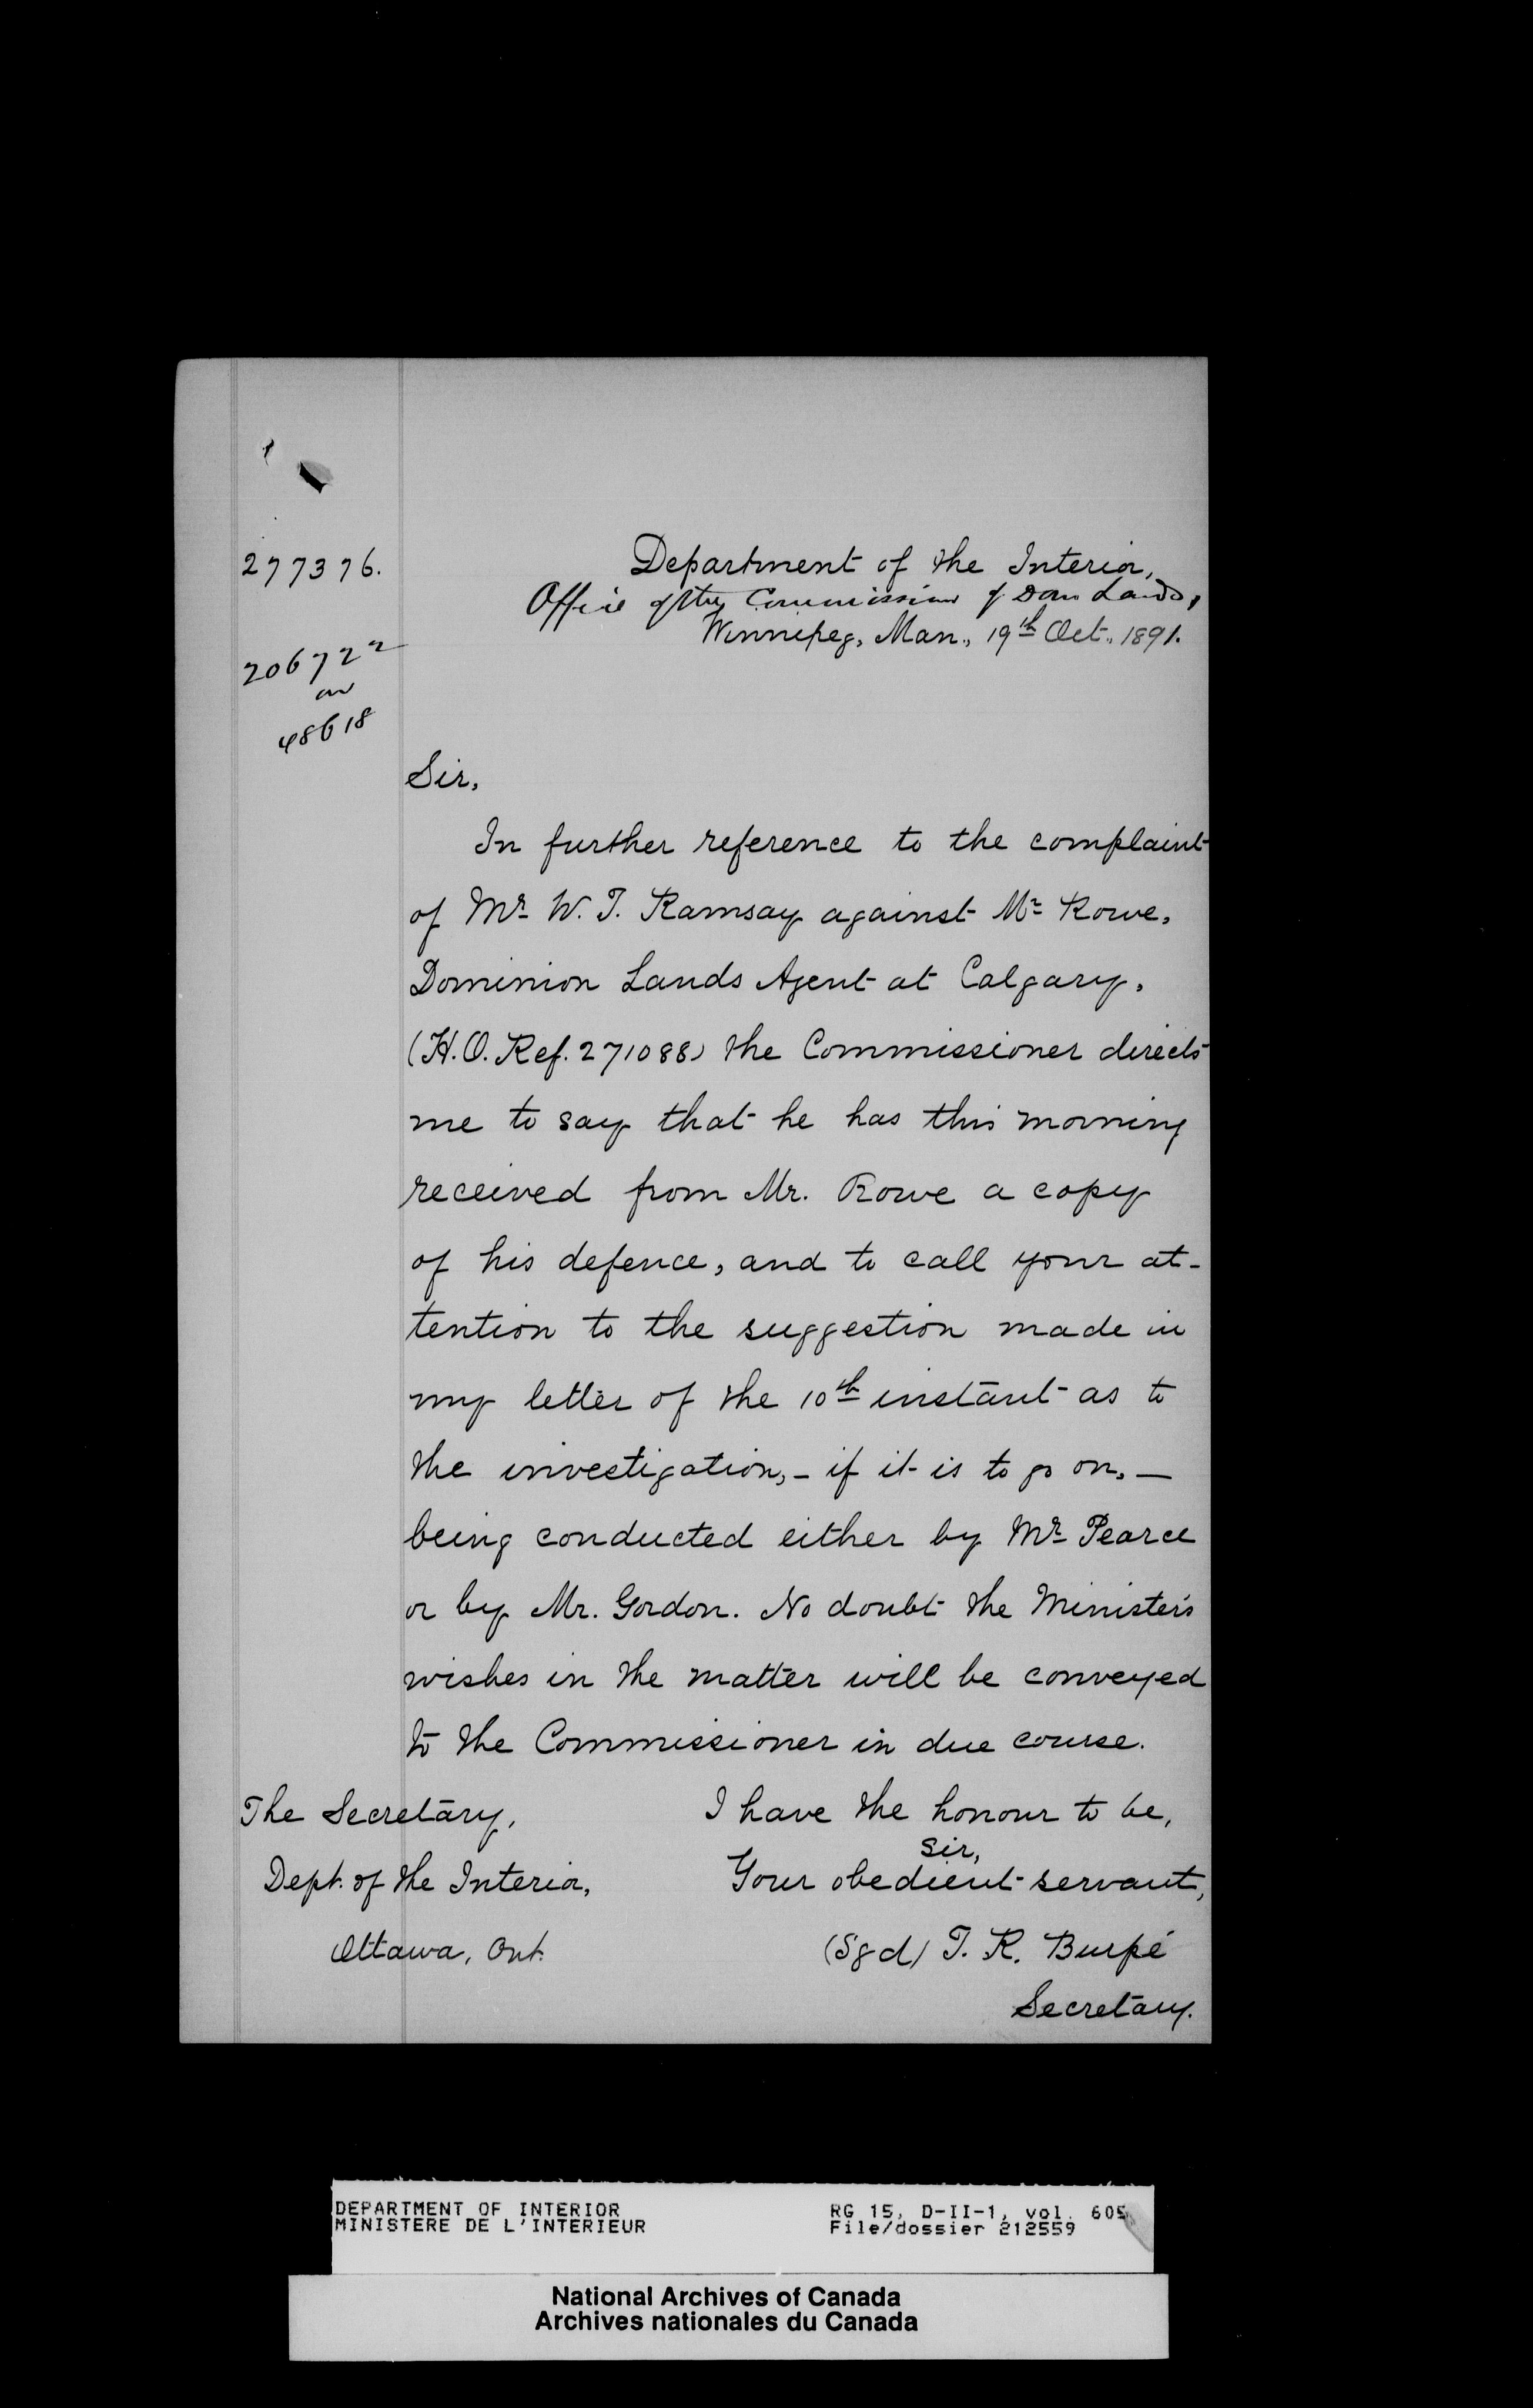 277376.
206722
on
48618
Department of the Interior,
Office of the Commissioner of Dom Lands,
Winnipeg, Man., 19th Oct. 1891.
Sir,
In further reference to the complaint
of Mr. W. T. Ramsay against Mr. Rowe,
Dominion Lands Agent at Calgary,
(H.O. Ref. 271088) the Commissioner directs
me to say that he has this morning
received from Mr. Rowe a copy
of his defence, and to call your at-
tention to the suggestion made in
my letter of the 10th instant as to
the investigation, - if it is to go on, -
being conducted either by Mr. Pearce
or by Mr. Gordon. No doubt the Minister's
wishes in the matter will be conveyed
to the Commissioner in due course.
I have the honour to be,
Sir,
Your obedient servant,
(Sgd) T. R. Burpé
Secretary.
The Secretary,
Dept. of the Interior,
Ottawa, Ont.
DEPARTMENT OF INTERIOR
MINISTERE DE L'INTERIEUR
RG 15, D-II-1, vol. 605
File/dossier 212559
National Archives of Canada
Archives nationales du Canada